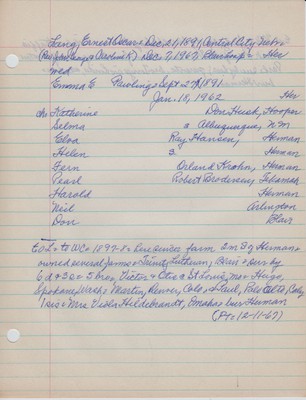 Lang, Ernest Oscar * Dec. 21, 1891, Central City, Nebr
Dec. 7, 1967, Her
md
Emma E. Rawlings Sept 1891
Jan. 18, 1962 Her
ch Katherine Don Husk, Hooper
Selma a Albuquerque, N M
Elva Ray Hansen, Herman
Helen 3. Herman
Fern Orland Krohn, Herman
Pearl Robert Brodersen, Tekamah
Harold Herman
Neil Arlington
Don Blair
E.O.L. to WC * 1897-8 & here since farm 2 m S of Herman &
owned several farms & Trinity Lutheran, & sur by
6 d + 3 s + 5 bros Victor & Otto of St Louis, Mo & Hugo,
Spokane, Wash & Martin, Denver, Colo & Paul, Palo Alto, Calif
1 sis & Mrs. Viola Hildebrandt, Omaha & bur Herman
(Pt. 12-11-67)